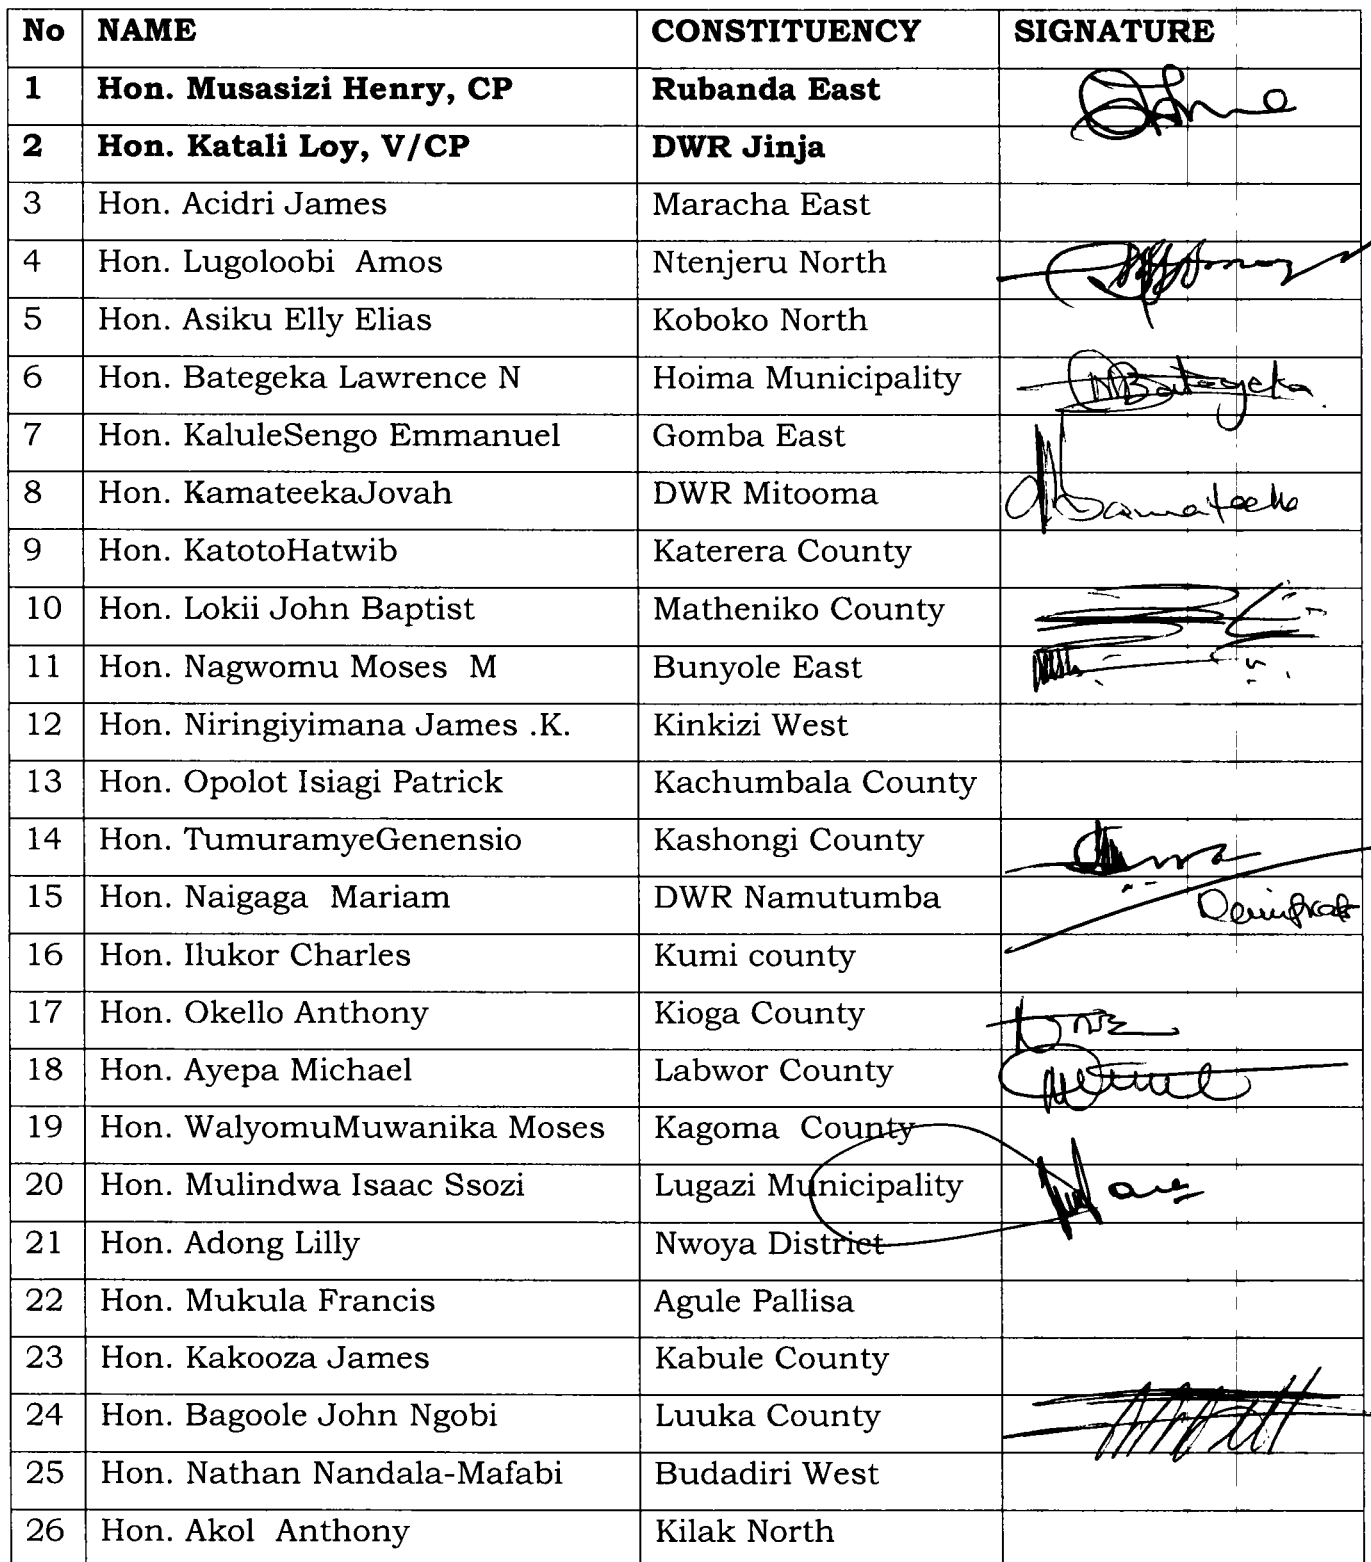 No NAME CONSTITUENCY SIGNATURE
1 Hon. Musasizi Henry, CP Rubanda East
2 Hon. Katali Loy, V/CP DWR Jinja
3 Hon. Acidri James Maracha East
4 Hon. Lugoloobi Amos Ntenjeru North
5 Hon. Asiku Elly Elias Koboko North
6 Hon. Bategeka Lawrence N Hoima Municipality Bategeka
7 Hon. KaluleSengo Emmanuel Gomba East
8 Hon. KamateekaJovah DWR Mitooma
9 Hon. KatotoHatwib Katerera County
10 Hon. Lokii John Baptist Matheniko County
11 Hon. Nagwomu Moses M Bunyole East
12 Hon. Niringiyimana James .K. Kinkizi West
13 Hon. Opolot Isiagi Patrick Kachumbala County
14 Hon. TumuramyeGenensio Kashongi County
15 Hon. Naigaga Mariam DWR Namutumba
16 Hon. Ilukor Charles Kumi county
17 Hon. Okello Anthony Kioga County
18 Hon. Ayepa Michael Labwor County
19 Hon. WalyomuMuwanika Moses Kagoma County
20 Hon. Mulindwa Isaac Ssozi Lugazi Municipality
21 Hon. Adong Lilly Nwoya District
22 Hon. Mukula Francis Agule Pallisa
23 Hon. Kakooza James Kabule County
24 Hon. Bagoole John Ngobi Luuka County
25 Hon. Nathan Nandala-Mafabi Budadiri West
26 Hon. Akol Anthony Kilak North